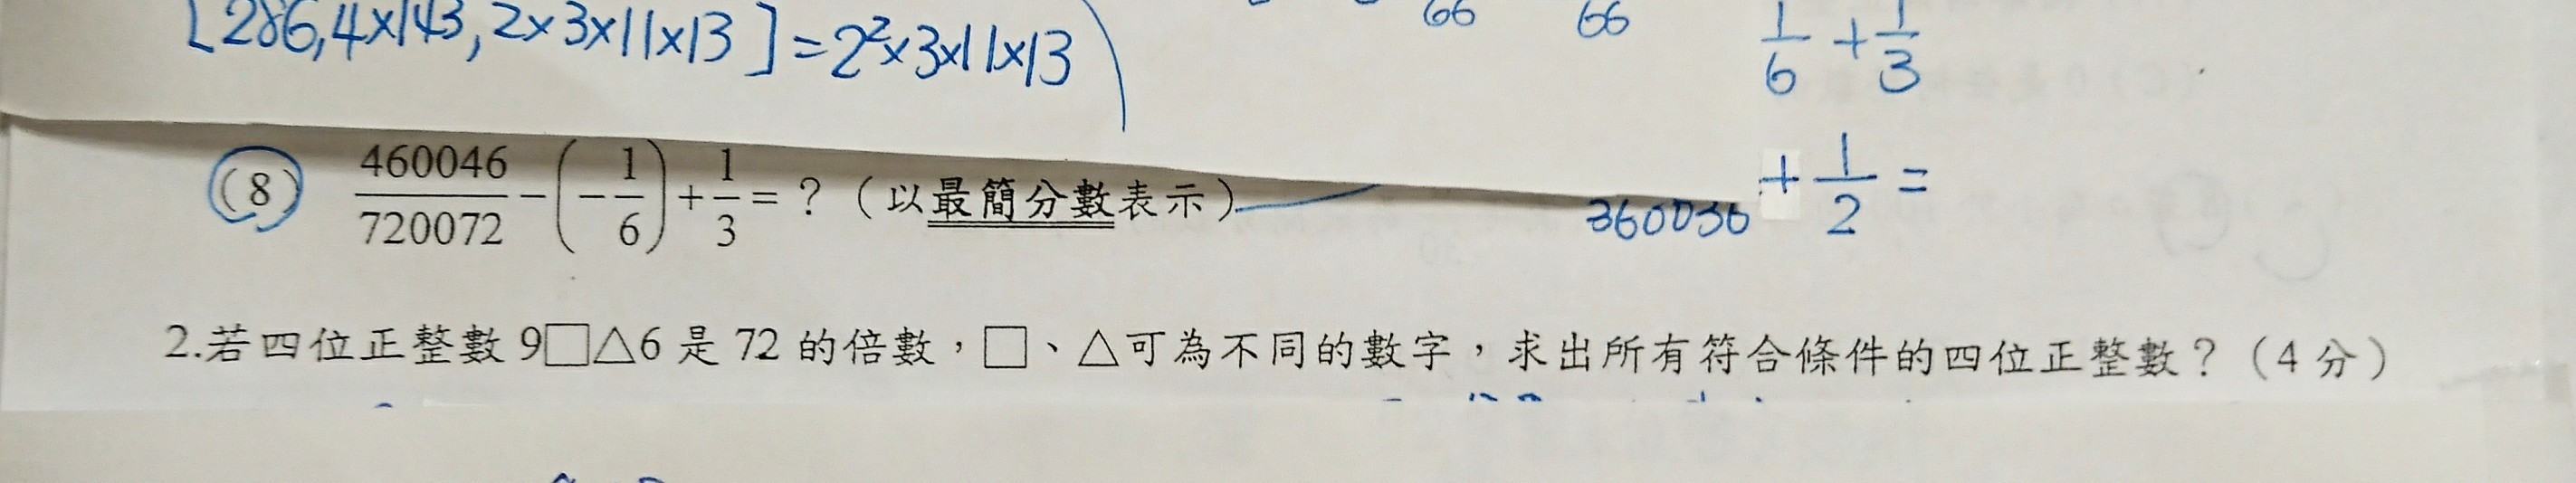 [286,4×143,2×3×11×13]=2²×3×11×13
66 66
1/6 + 1/3
(8) 460046/720072 - (-1/6) + 1/3 = ?(以最簡分數表示)
360036 + 1/2 =
2.若四位正整數 9□△6 是 72 的倍數,□、△可為不同的數字,求出所有符合條件的四位正整數?(4 分)